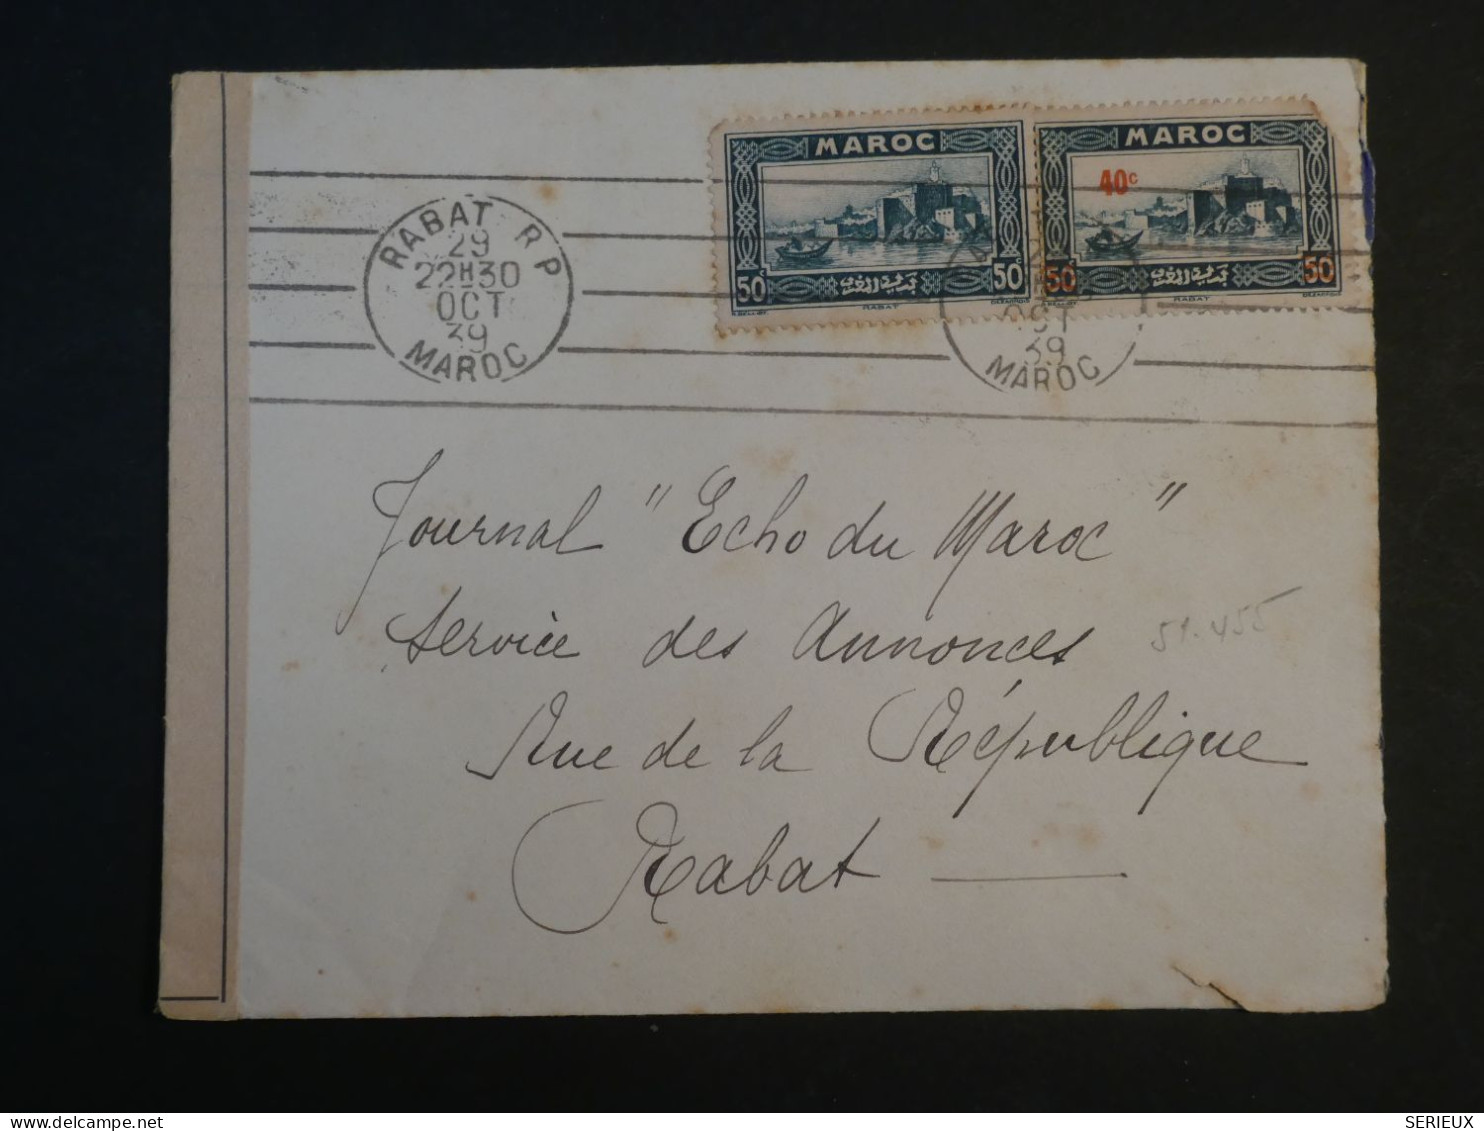 RABAT R P
29
22H30
OCT
39
MAROC
MAROC
50c
50c
RABAT
MAROC
40c
50c
50
RABAT
OCT
39
MAROC
Journal "Echo du Maroc"
Service des Annonces
51.455
Rue de la République
Rabat
SERIEUX